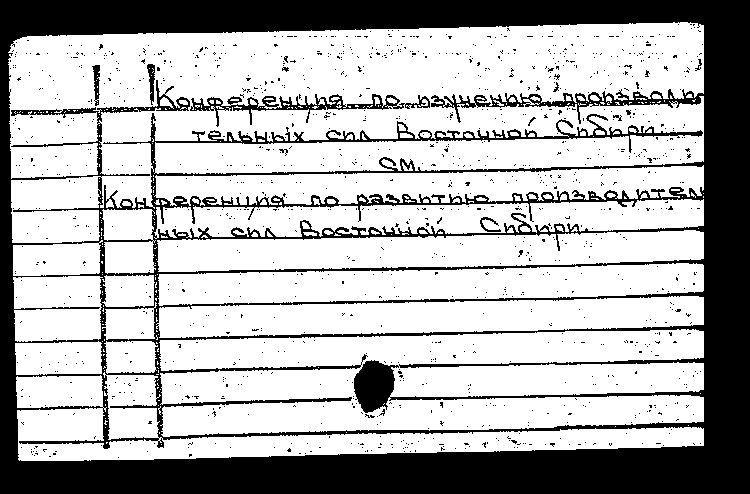 Конференция по изучению производи-
тельных сил Восточной Сибири.
см.
Конференция по развитию производитель
ных сил Восточной Сибири.